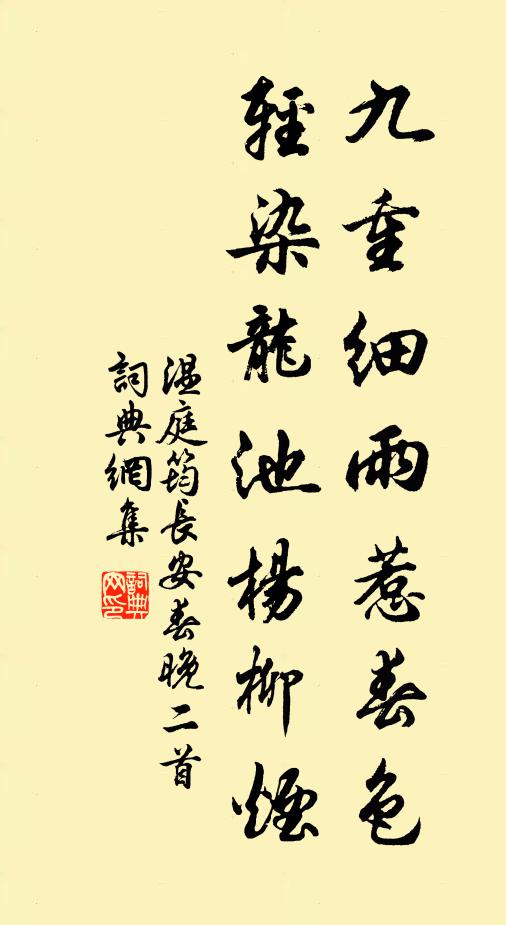 九重細雨惹春色
輕染龍池楊柳煙
温庭筠長安春晚二首
詞典網集
詞典網印